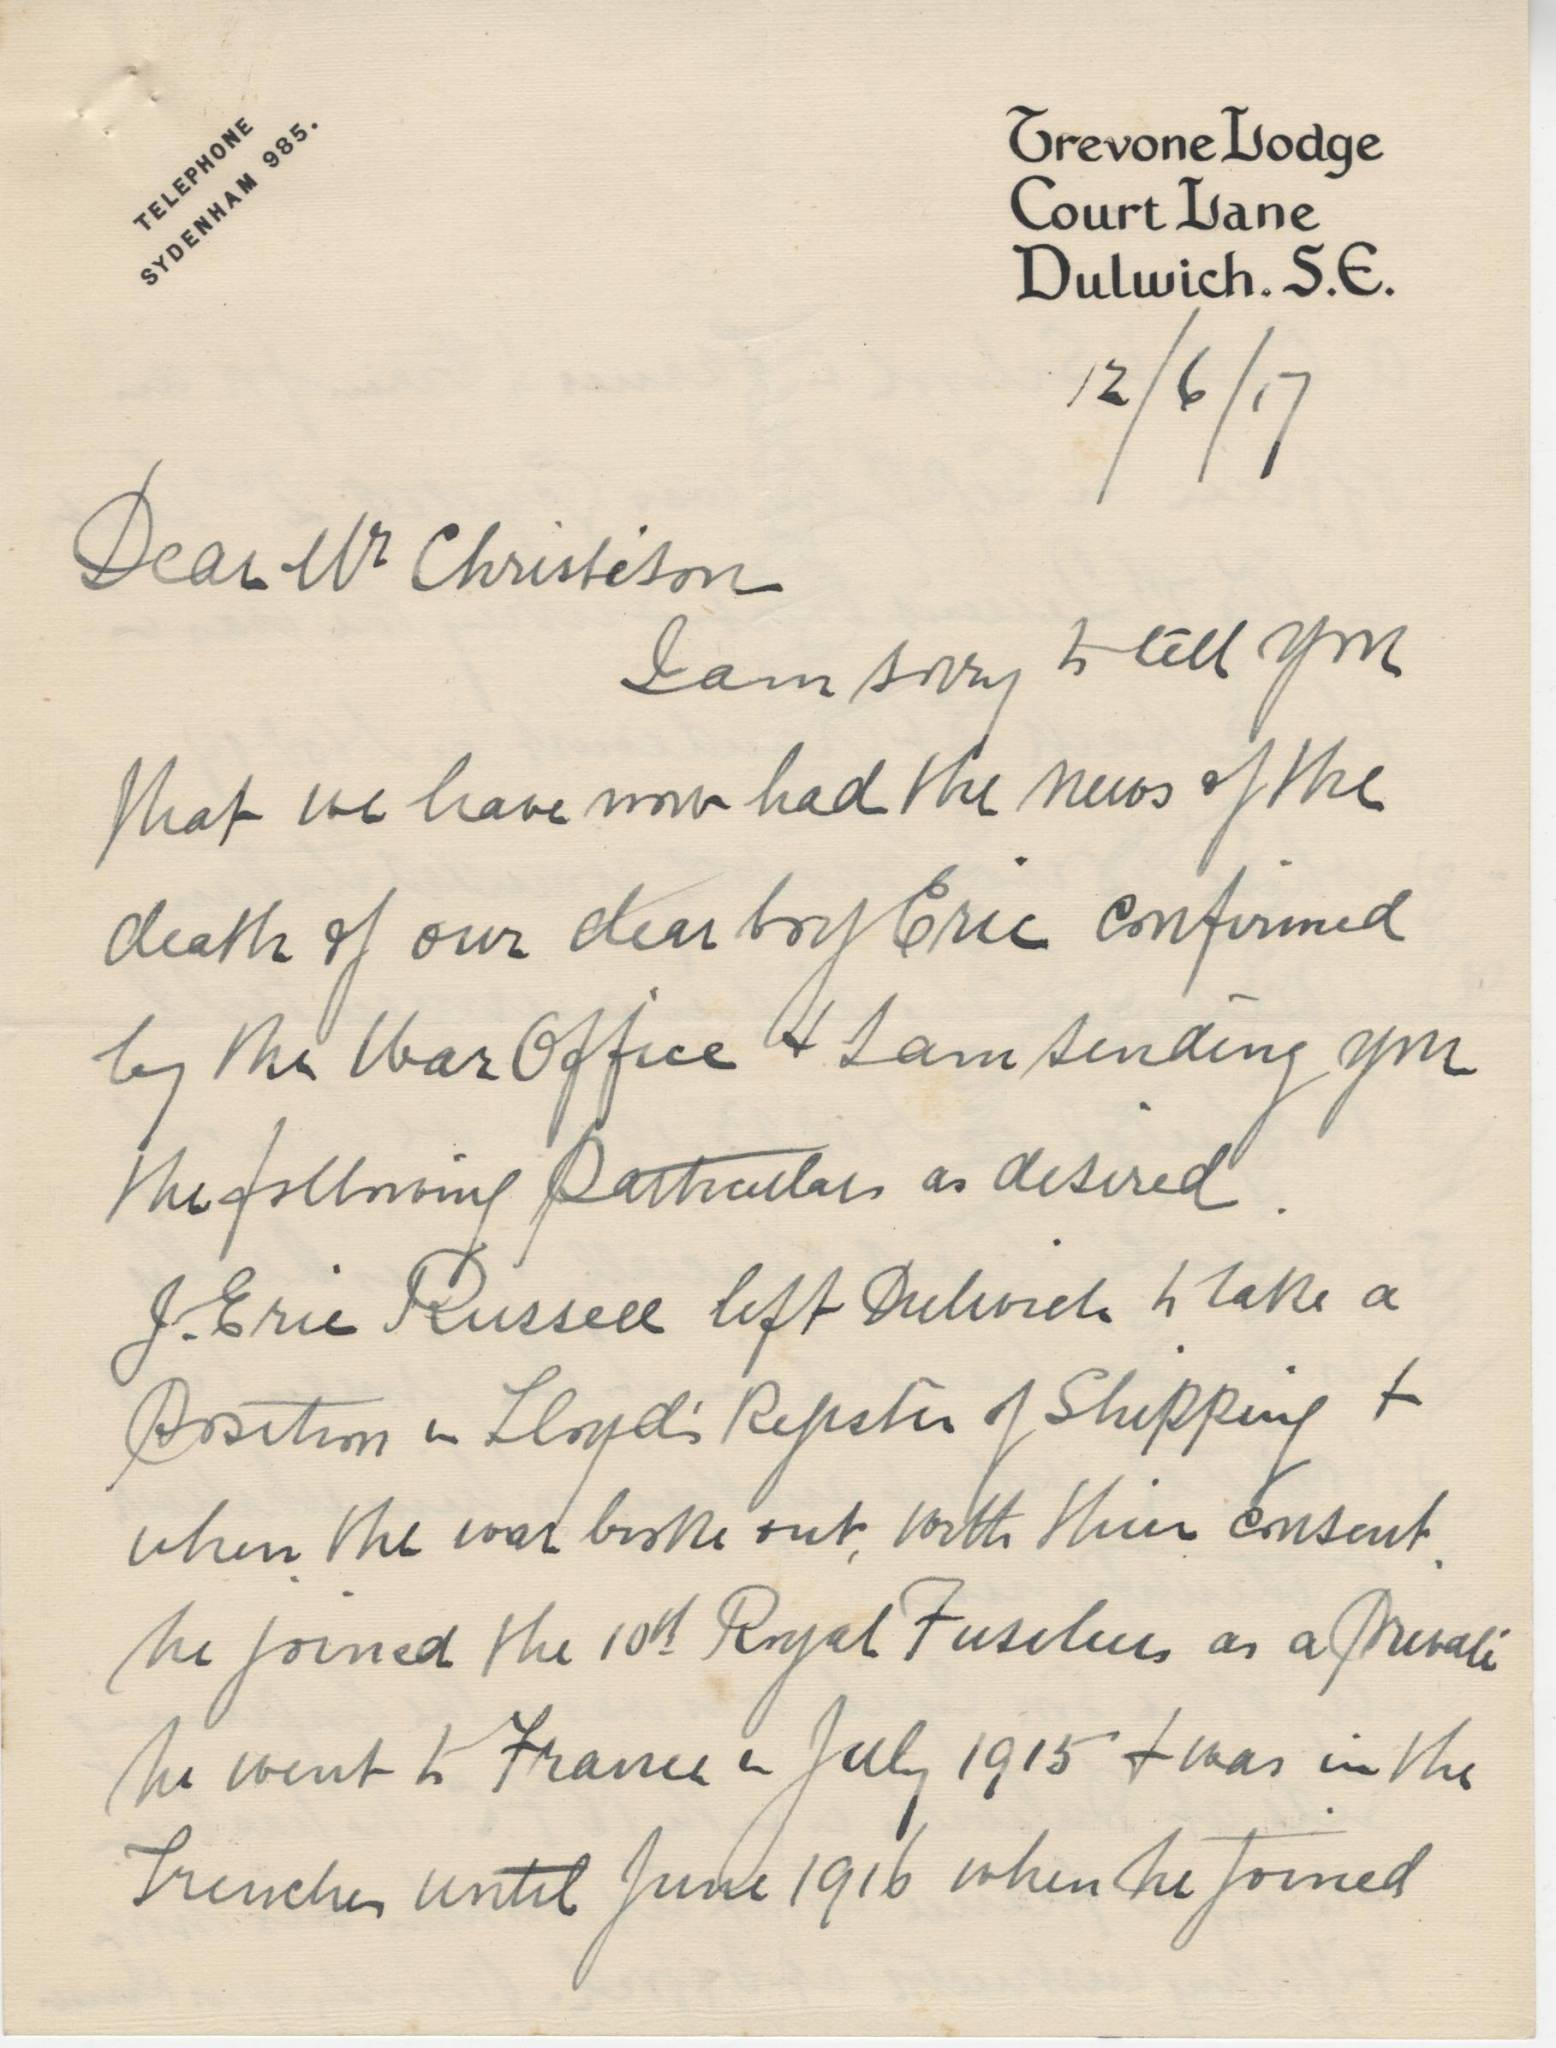 TELEPHONE
SYDENHAM 985.
Trevone Lodge
Court Lane
Dulwich. S.E.
12/6/17
Dear Mr Christison
I am sorry to tell you
that we have now had the news of the
death of our dear boy Eric confirmed
by the War Office & I am sending you
the following particulars as desired.
J. Eric Russell left Dulwich to take a
Position in Lloyd's Register of Shipping &
when the war broke out, with their consent,
he joined the 10th Royal Fusiliers as a Private
he went to France in July 1915 & was in the
Trenches until June 1916 when he joined